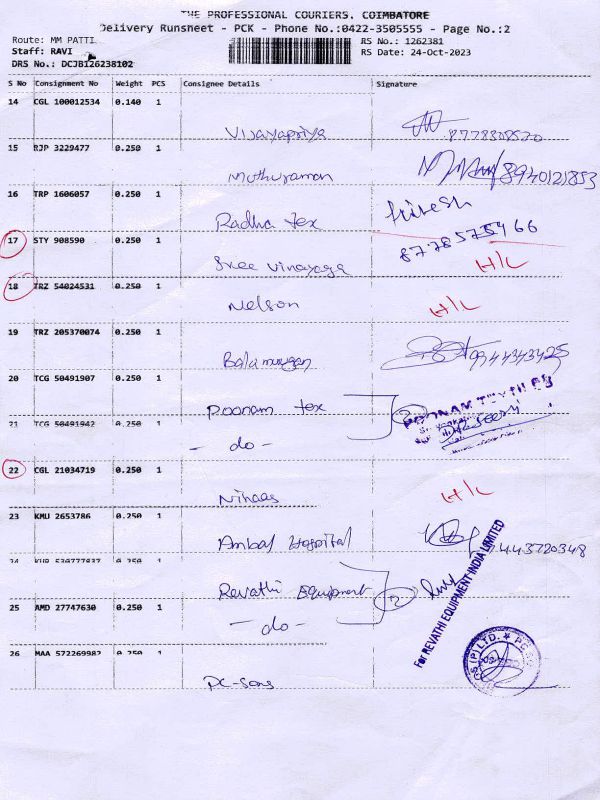 THE PROFESSIONAL COURIERS. COIMBATORE
Delivery Runsheet - PCK - Phone No.:0422-3505555 - Page No.:2
Route: MM PATTI
Staff: RAVI
DRS No.: DCJB126238102
RS No.: 1262381
RS Date: 24-Oct-2023
S No Consignment No Weight PCS Consignee Details Signature
14 CGL 100012534 0.140 1
Vijayapriya 8778308520
15 RJP 3229477 0.250 1
Muthuraman 8940121853
16 TRP 1606057 0.250 1
Radha tex
17 STY 908590 0.250 1
8778575466
Sree Vinayaga H/L
18 TRZ 54024531 0.250 1
Nelson H/L
19 TRZ 205370074 0.250 1
Balamurgan 9944343425
20 TCG 50491907 0.250 1
Poonam tex 2 POONAM TEXTILES
21 TCG 50491942 0.250 1
- do -
22 CGL 21034719 0.250 1
Nihaas H/L
23 KMU 2653786 0.250 1
Ambal Hospital 443720348
24 0.250 1
Revathi Equipment 2 For REVATHI EQUIPMENT INDIA LIMITED
25 AMD 27747630 0.250 1
- do -
26 MAA 572269982 0.250 1
PC-Sons